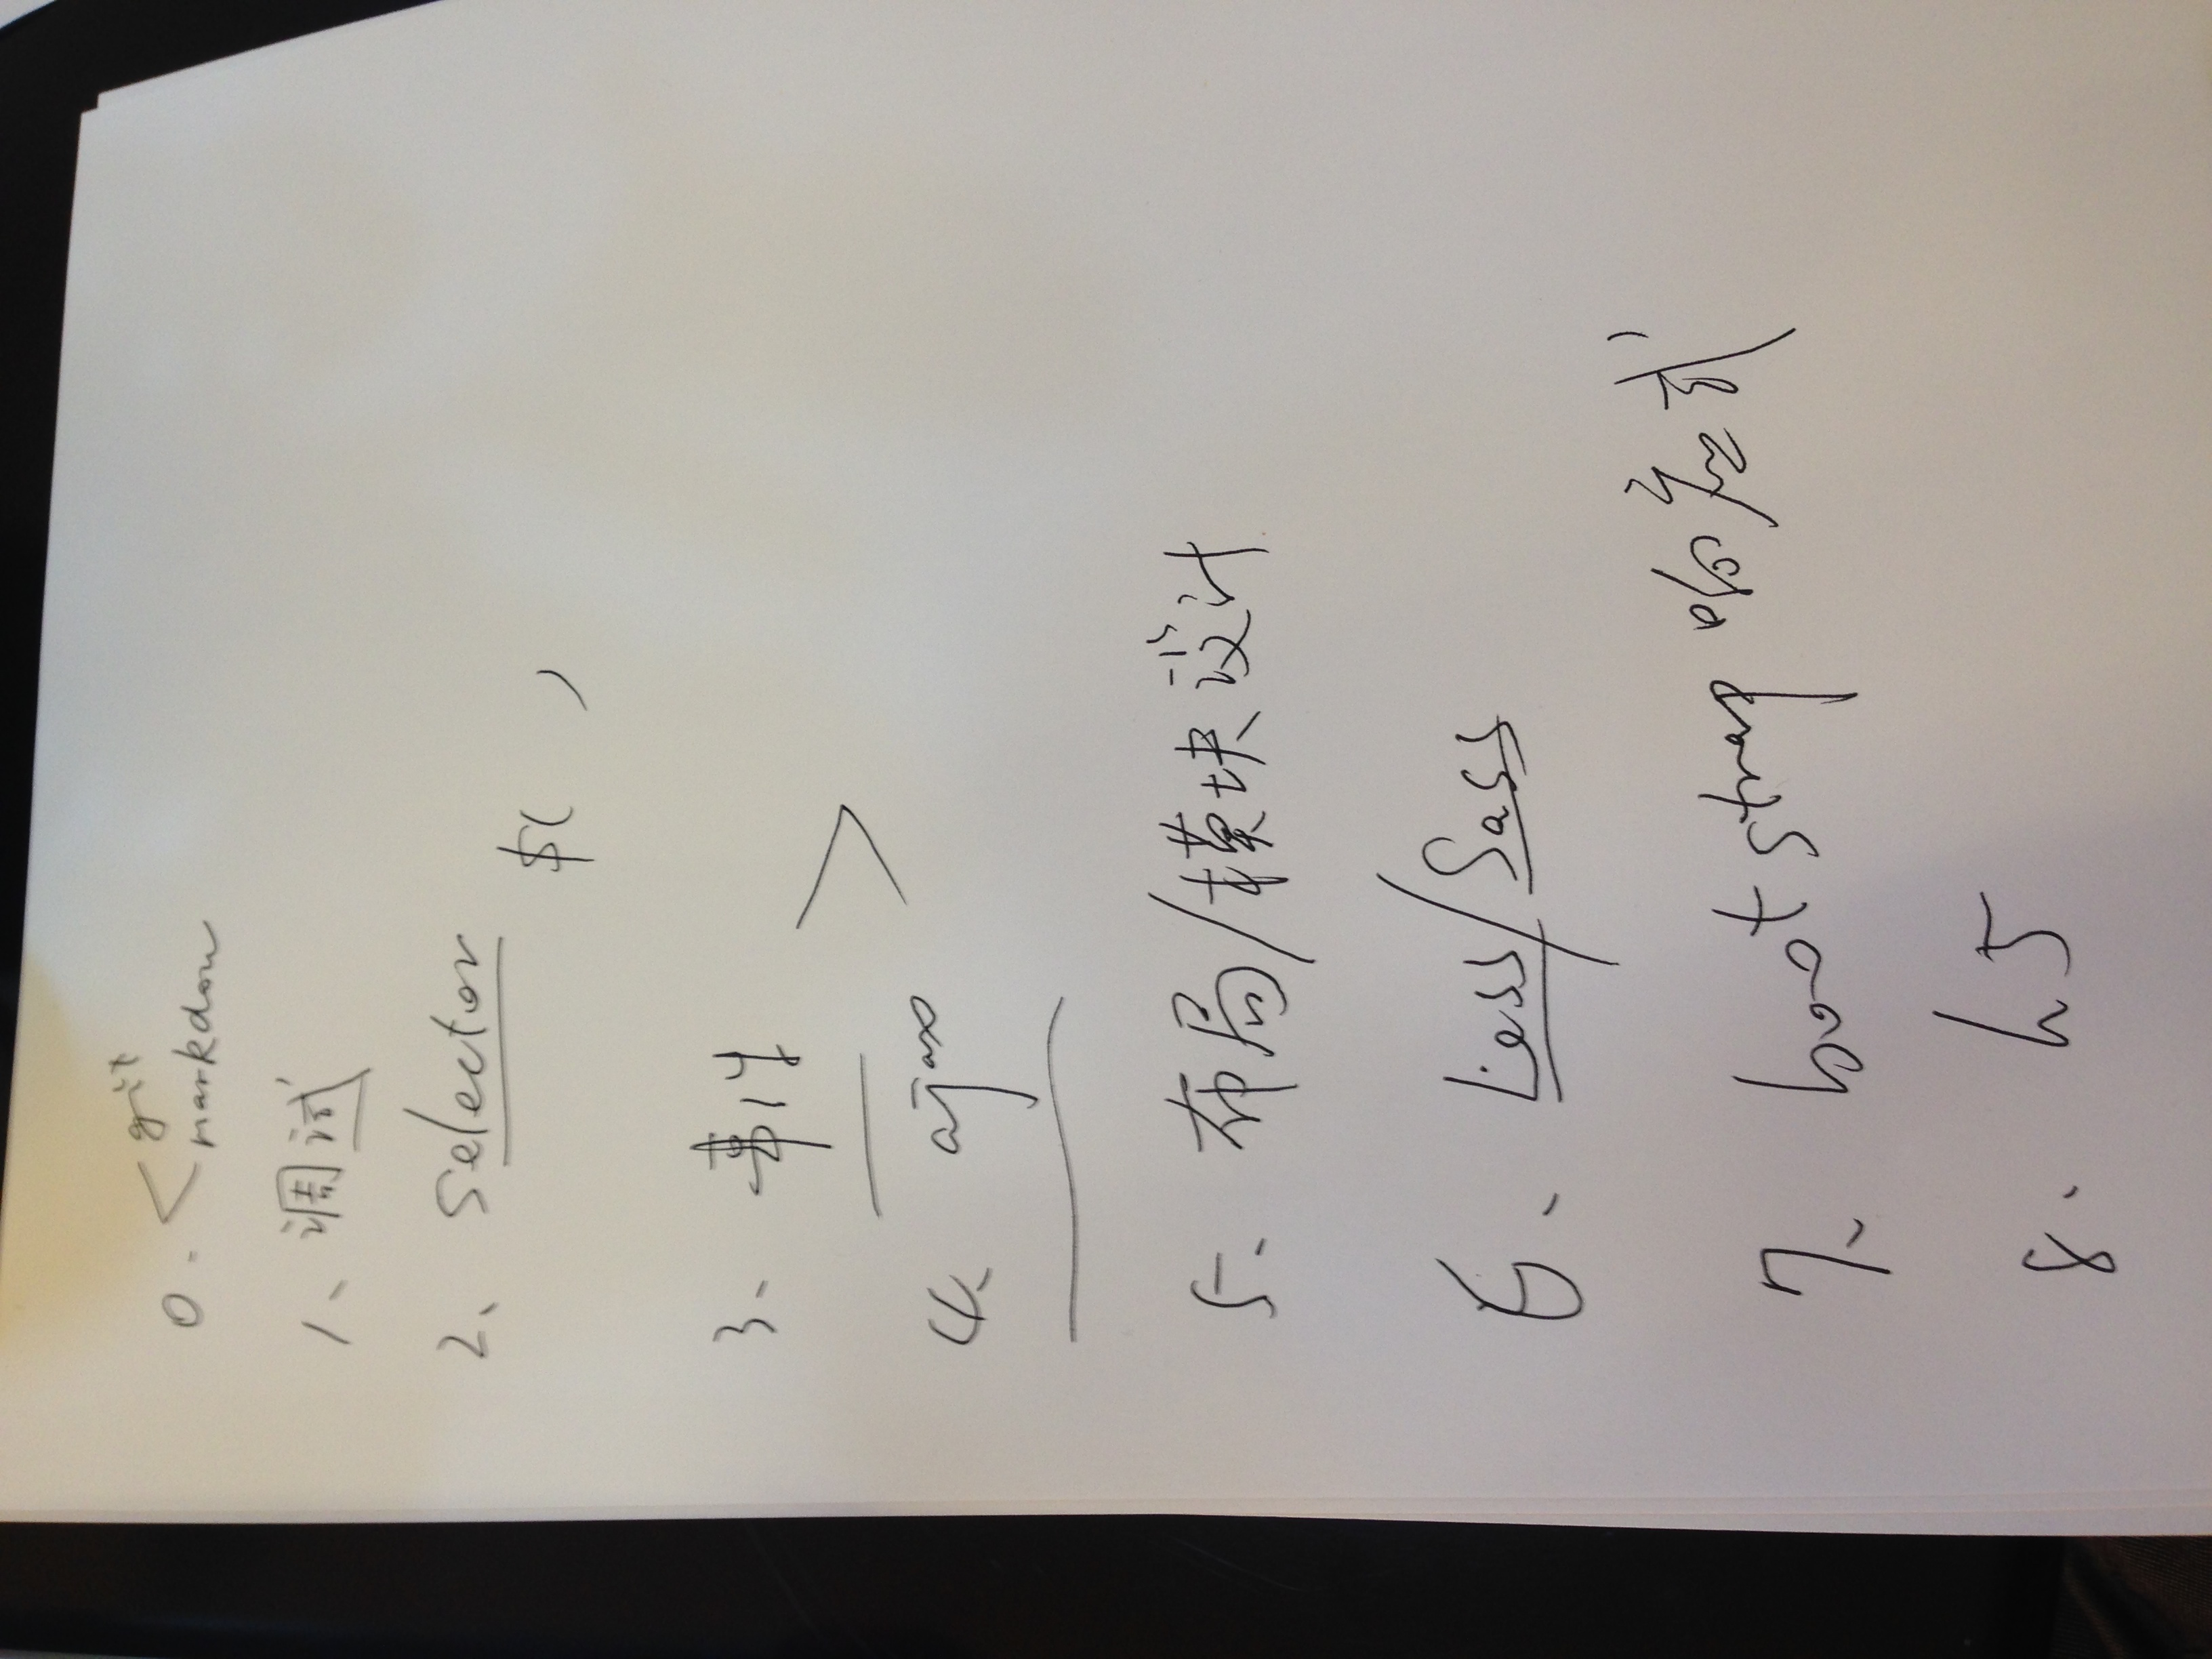 0. < git
markdown
1、调试
2、selector
$( )
3、事件 >
4、ajax
5、布局/模块设计
6、Less/Sass
7、bootstrap 响应式
8、h5